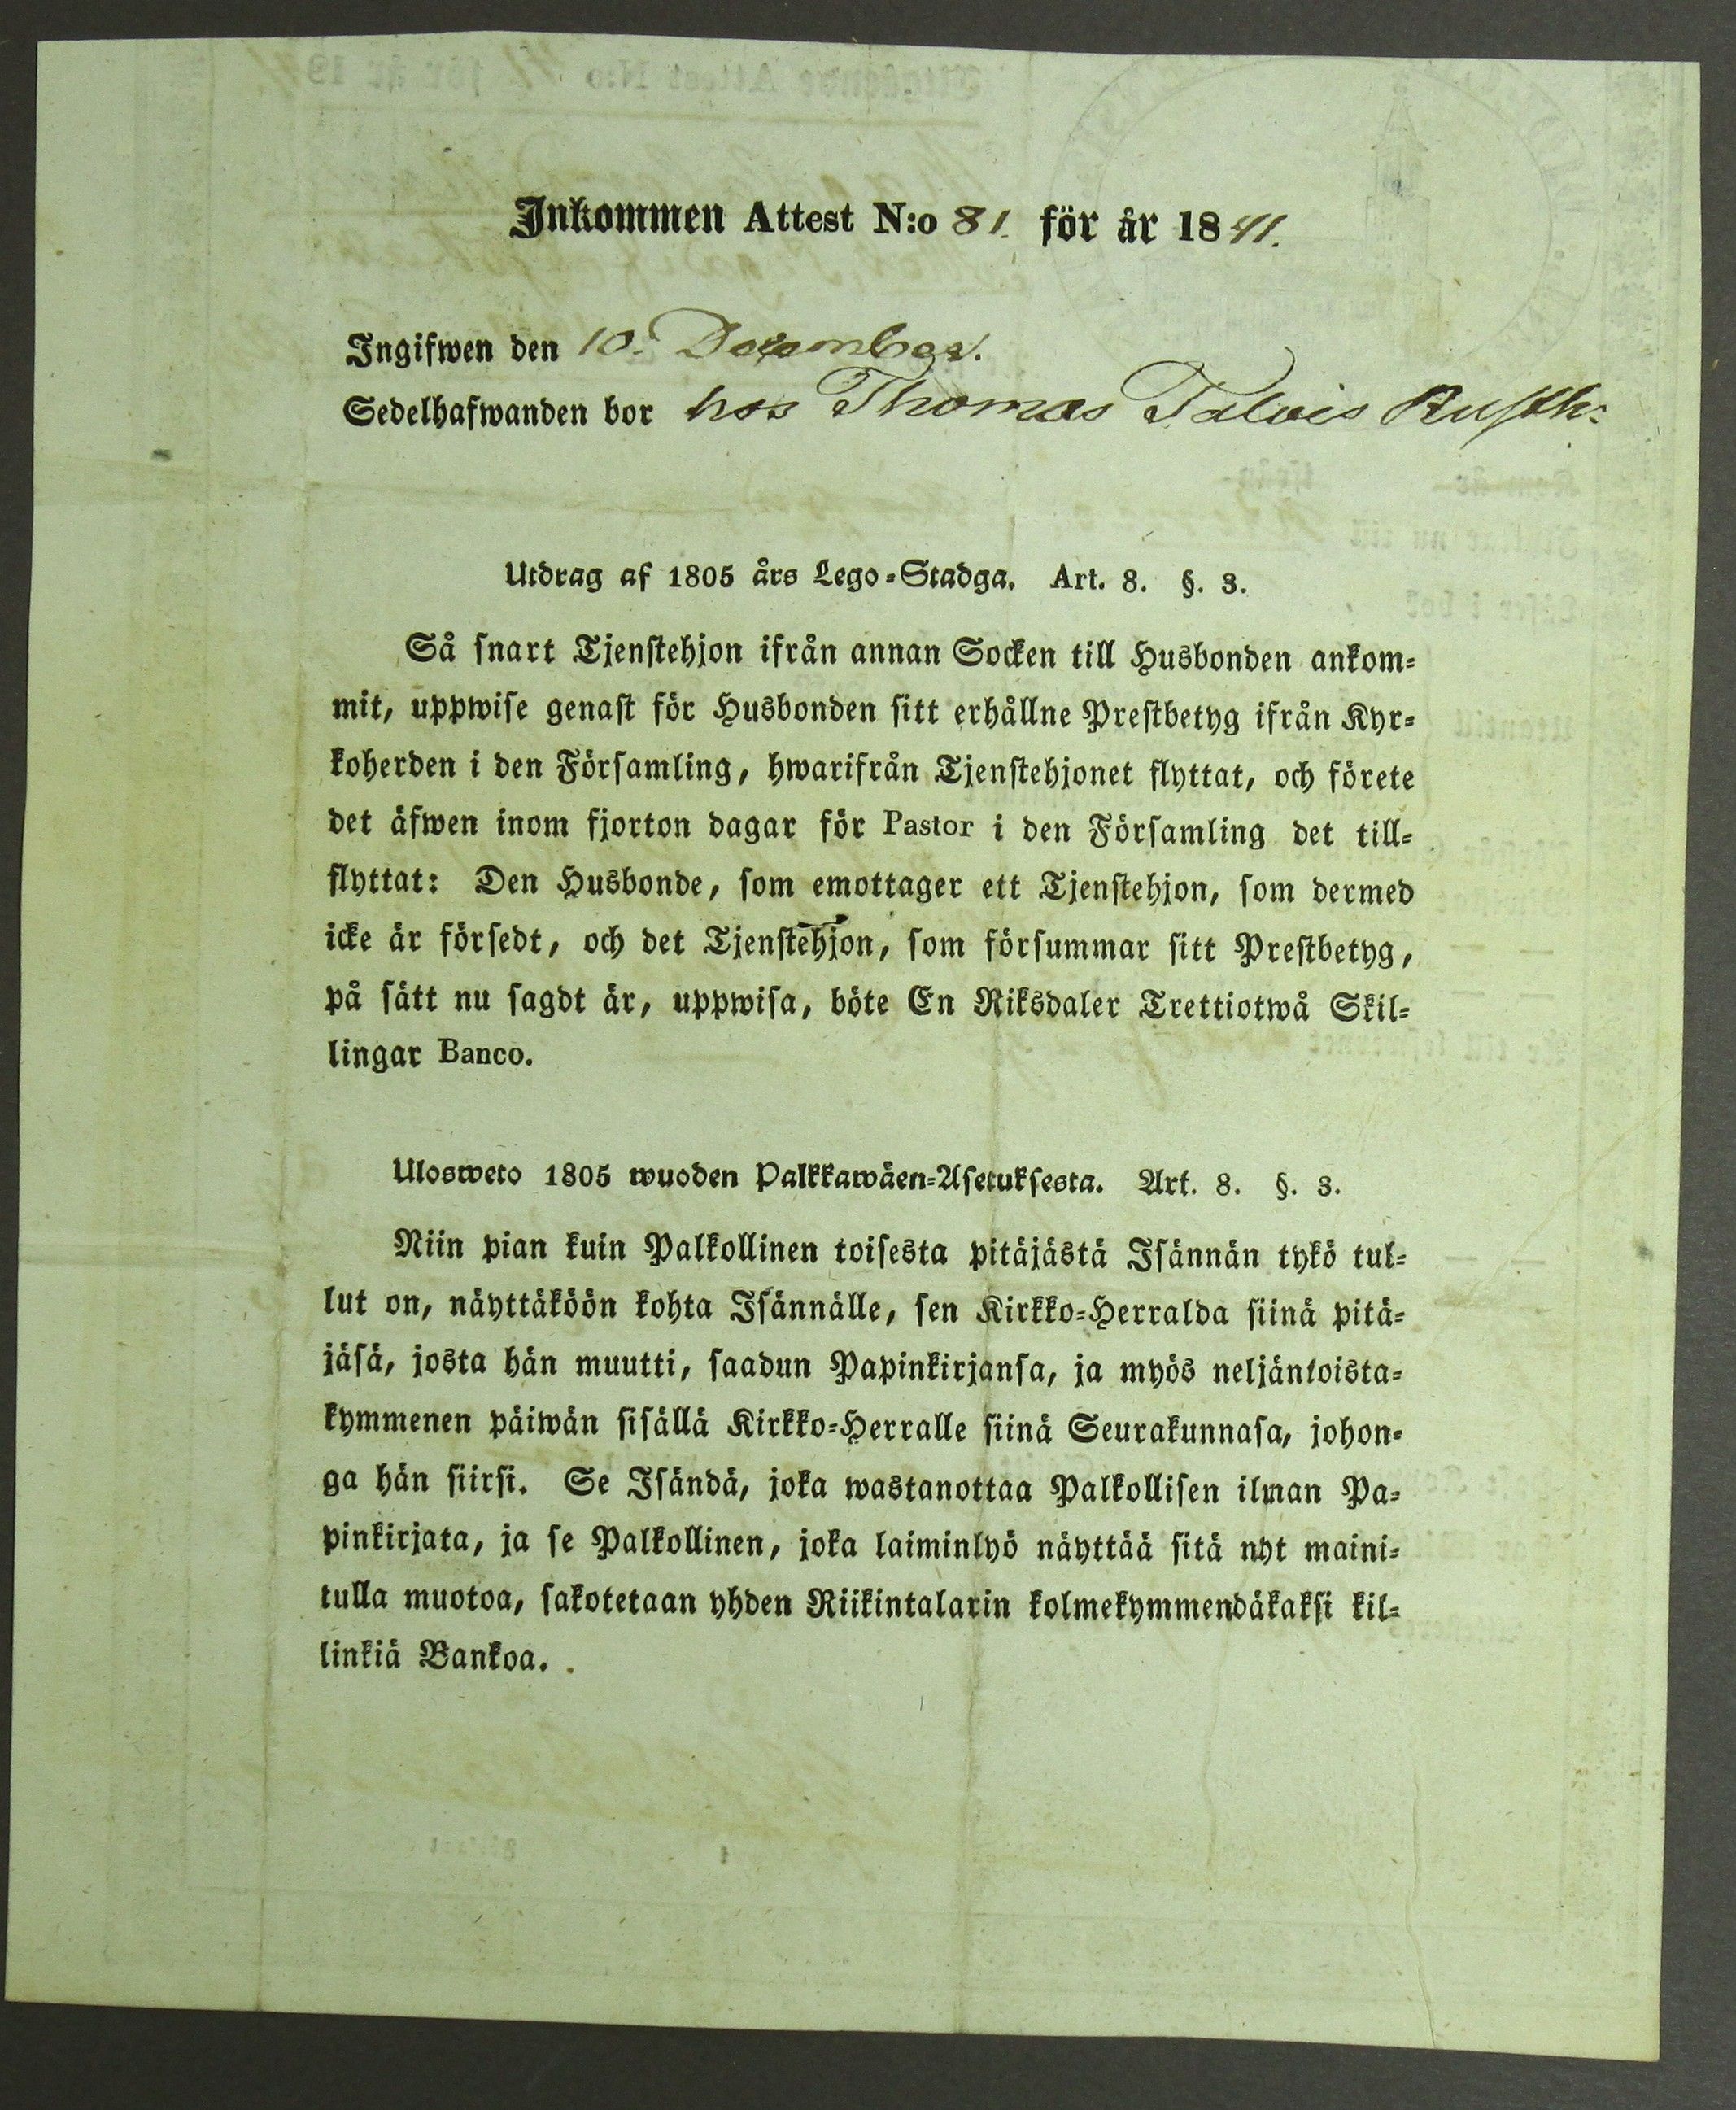 Inkommen Attest N:o 81. för år 1841.
Ingifwen den 10. December.
Sedelhafwanden bor hos Thomas Talvis Rusth:
Utdrag af 1805 års Lego-Stadga. Art. 8. §. 3.
Så snart Tjenstehjon ifrån annan Socken till Husbonden ankom-
mit, uppwise genast för Husbonden sitt erhållne Prestbetyg ifrån Kyr-
koherden i den Församling, hwarifrån Tjenstehjonet flyttat, och förete
det äfwen inom fjorton dagar för Pastor i den Församling det till-
flyttat: Den Husbonde, som emottager ett Tjenstehjon, som dermed
icke är försedt, och det Tjenstehjon, som försummar sitt Prestbetyg,
på sätt nu sagdt är, uppwisa, böte En Riksdaler Trettiotwå Skil-
lingar Banco.
Ulosweto 1805 wuoden Palkkawäen-Asetuksesta. Art. 8. §. 3.
Niin pian kuin Palkollinen toisesta pitäjästä Isännän tykö tul-
lut on, näyttäköön kohta Isännälle, sen Kirkko-Herralda siinä pitä-
jäsä, josta hän muutti, saadun Papinkirjansa, ja myös neljäntoista-
kymmenen päiwän sisällä Kirkko-Herralle siinä Seurakunnasa, johon-
ga hän siirsi. Se Isändä, joka wastanottaa Palkollisen ilman Pa-
pinkirjata, ja se Palkollinen, joka laiminlyö näyttää sitä nyt maini-
tulla muotoa, sakotetaan yhden Riikintalarin kolmekymmendäkaksi kil-
linkiä Bankoa.